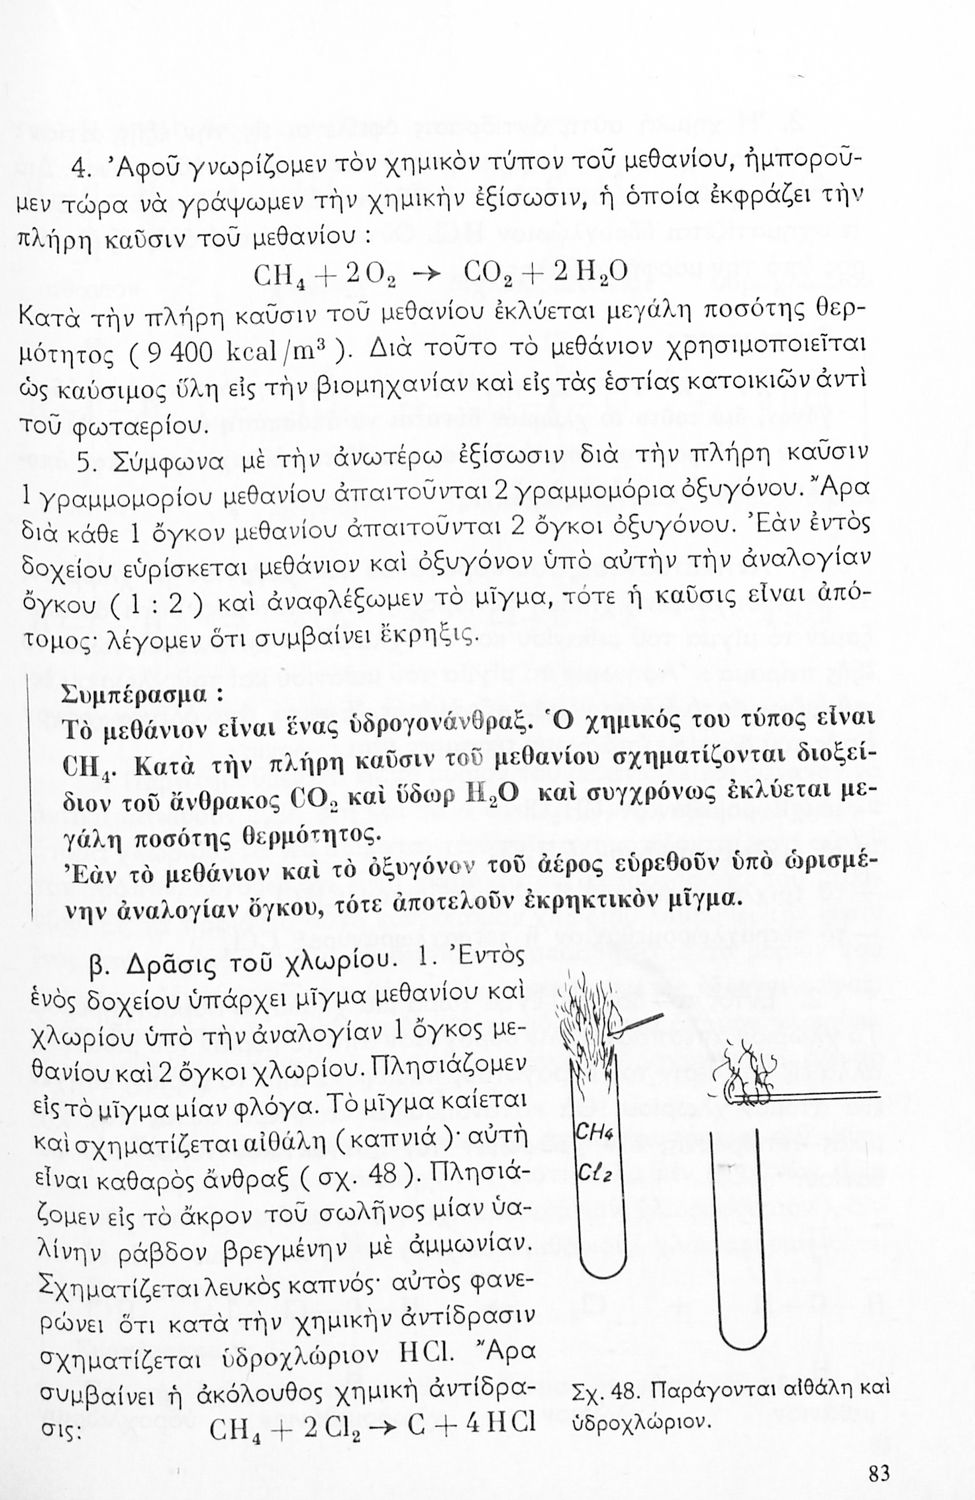 4. Ἀφοῦ γνωρίζομεν τὸν χημικὸν τύπον τοῦ μεθανίου, ἠμποροῦ-
μεν τώρα νὰ γράψωμεν τὴν χημικὴν ἐξίσωσιν, ἡ ὁποία ἐκφράζει τὴν
πλήρη καῦσιν τοῦ μεθανίου :
CH₄ + 2 O₂ → CO₂ + 2 H₂O
Κατὰ τὴν πλήρη καῦσιν τοῦ μεθανίου ἐκλύεται μεγάλη ποσότης θερ-
μότητος ( 9 400 kcal/m³ ). Διὰ τοῦτο τὸ μεθάνιον χρησιμοποιεῖται
ὡς καύσιμος ὕλη εἰς τὴν βιομηχανίαν καὶ εἰς τὰς ἑστίας κατοικιῶν ἀντὶ
τοῦ φωταερίου.
5. Σύμφωνα μὲ τὴν ἀνωτέρω ἐξίσωσιν διὰ τὴν πλήρη καῦσιν
1 γραμμομορίου μεθανίου ἀπαιτοῦνται 2 γραμμομόρια ὀξυγόνου. Ἄρα
διὰ κάθε 1 ὄγκον μεθανίου ἀπαιτοῦνται 2 ὄγκοι ὀξυγόνου. Ἐὰν ἐντὸς
δοχείου εὑρίσκεται μεθάνιον καὶ ὀξυγόνον ὑπὸ αὐτὴν τὴν ἀναλογίαν
ὄγκου ( 1 : 2 ) καὶ ἀναφλέξωμεν τὸ μῖγμα, τότε ἡ καῦσις εἶναι ἀπό-
τομος· λέγομεν ὅτι συμβαίνει ἔκρηξις.
Συμπέρασμα :
Τὸ μεθάνιον εἶναι ἕνας ὑδρογονάνθραξ. Ὁ χημικός του τύπος εἶναι
CH₄. Κατὰ τὴν πλήρη καῦσιν τοῦ μεθανίου σχηματίζονται διοξεί-
διον τοῦ ἄνθρακος CO₂ καὶ ὕδωρ H₂O καὶ συγχρόνως ἐκλύεται με-
γάλη ποσότης θερμότητος.
Ἐὰν τὸ μεθάνιον καὶ τὸ ὀξυγόνον τοῦ ἀέρος εὑρεθοῦν ὑπὸ ὡρισμέ-
νην ἀναλογίαν ὄγκου, τότε ἀποτελοῦν ἐκρηκτικὸν μῖγμα.
β. Δρᾶσις τοῦ χλωρίου. 1. Ἐντὸς
ἑνὸς δοχείου ὑπάρχει μῖγμα μεθανίου καὶ
χλωρίου ὑπὸ τὴν ἀναλογίαν 1 ὄγκος με-
θανίου καὶ 2 ὄγκοι χλωρίου. Πλησιάζομεν
εἰς τὸ μῖγμα μίαν φλόγα. Τὸ μῖγμα καίεται
καὶ σχηματίζεται αἰθάλη ( καπνιά )· αὐτὴ
εἶναι καθαρὸς ἄνθραξ ( σχ. 48 ). Πλησιά-
ζομεν εἰς τὸ ἄκρον τοῦ σωλῆνος μίαν ὑα-
λίνην ράβδον βρεγμένην μὲ ἀμμωνίαν.
Σχηματίζεται λευκὸς καπνός· αὐτὸς φανε-
ρώνει ὅτι κατὰ τὴν χημικὴν ἀντίδρασιν
σχηματίζεται ὑδροχλώριον HCl. Ἄρα
συμβαίνει ἡ ἀκόλουθος χημικὴ ἀντίδρα-
σις: CH₄ + 2 Cl₂ → C + 4 HCl
CH₄
Cl₂
Σχ. 48. Παράγονται αἰθάλη καὶ
ὑδροχλώριον.
83